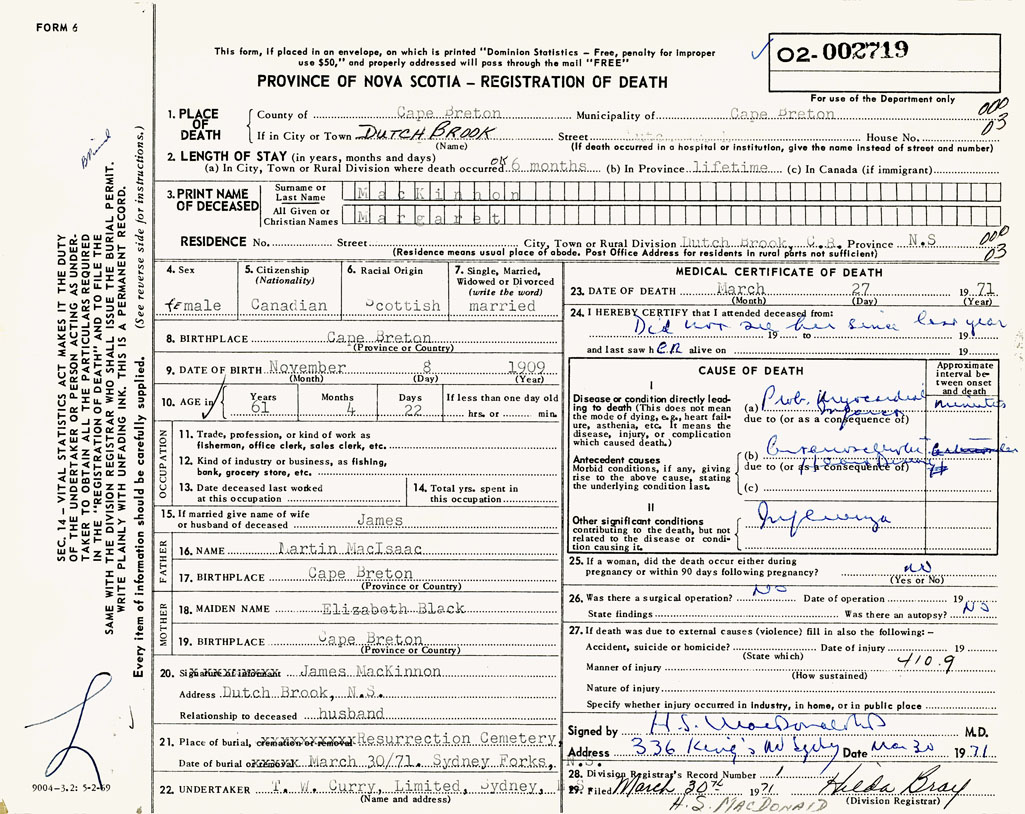 FORM 6
This form, if placed in an envelope, on which is printed "Dominion Statistics – Free, penalty for improper
use $50," and properly addressed will pass through the mail "FREE"
02-002719
PROVINCE OF NOVA SCOTIA – REGISTRATION OF DEATH
For use of the Department only
1. PLACE OF DEATH
County of Cape Breton Municipality of Cape Breton
000
03
If in City or Town DUTCH BROOK Street House No.
(Name) (If death occurred in a hospital or institution, give the name instead of street and number)
2. LENGTH OF STAY (in years, months and days)
(a) In City, Town or Rural Division where death occurred 6 months (b) In Province lifetime (c) In Canada (if immigrant)
3. PRINT NAME OF DECEASED
Surname or Last Name MacKinnon
All Given or Christian Names Margaret
RESIDENCE No. Street City, Town or Rural Division Dutch Brook, C.B. Province N.S
(Residence means usual place of abode. Post Office Address for residents in rural parts not sufficient)
000
03
4. Sex
female
5. Citizenship
(Nationality)
Canadian
6. Racial Origin
Scottish
7. Single, Married,
Widowed or Divorced
(write the word)
married
8. BIRTHPLACE Cape Breton
(Province or Country)
9. DATE OF BIRTH November 8 1909
(Month) (Day) (Year)
10. AGE in
Years Months Days If less than one day old
61 4 22 hrs. or min.
OCCUPATION
11. Trade, profession, or kind of work as
fisherman, office clerk, sales clerk, etc.
12. Kind of industry or business, as fishing,
bank, grocery store, etc.
13. Date deceased last worked
at this occupation
14. Total yrs. spent in
this occupation
15. If married give name of wife
or husband of deceased James
FATHER
16. NAME Martin MacIsaac
17. BIRTHPLACE Cape Breton
(Province or Country)
MOTHER
18. MAIDEN NAME Elizabeth Black
19. BIRTHPLACE Cape Breton
(Province or Country)
20. Signature of informant James MacKinnon
Address Dutch Brook, N.S.
Relationship to deceased husband
21. Place of burial, cremation or removal Resurrection Cemetery,
Date of burial or removal March 30/71. Sydney Forks, N.S.
22. UNDERTAKER T. W. Curry, Limited, Sydney, N.S.
(Name and address)
MEDICAL CERTIFICATE OF DEATH
23. DATE OF DEATH March 27 1971
(Month) (Day) (Year)
24. I HEREBY CERTIFY that I attended deceased from:
Did not see her since last year
19 to 19
and last saw her alive on 19
CAUSE OF DEATH
Approximate interval between onset and death
I
Disease or condition directly leading to death (This does not
mean the mode of dying, e.g., heart failure, asthenia, etc. It means the
disease, injury, or complication
which caused death.)
(a) Prob. Myocardial
Infarct
minutes
due to (or as a consequence of)
Antecedent causes
Morbid conditions, if any, giving
rise to the above cause, stating
the underlying condition last.
(b)
due to (or as a consequence of)
(c)
II
Other significant conditions
contributing to the death, but not
related to the disease or condition
causing it.
Influenza
25. If a woman, did the death occur either during
pregnancy or within 90 days following pregnancy? NO
(Yes or No)
26. Was there a surgical operation? NO Date of operation 19
State findings Was there an autopsy? NO
27. If death was due to external causes (violence) fill in also the following: –
Accident, suicide or homicide? Date of injury 19
(State which)
410.9
Manner of injury
(How sustained)
Nature of injury
Specify whether injury occurred in industry, in home, or in public place
Signed by H.S. MacDonald MD M.D.
Address 336 King's Rd Sydney Date Mar 30 1971
28. Division Registrar's Record Number 1
29. Filed March 30th 1971 Hilda Bray
(Division Registrar)
H. S. MACDONALD
SEC. 14 – VITAL STATISTICS ACT MAKES IT THE DUTY
OF THE UNDERTAKER OR PERSON ACTING AS UNDERTAKER
TO OBTAIN ALL THE PARTICULARS REQUIRED
IN THE "REGISTRATION OF DEATH" AND TO FILE THE
SAME WITH THE DIVISION REGISTRAR WHO SHALL ISSUE THE BURIAL PERMIT.
WRITE PLAINLY WITH UNFADING INK. THIS IS A PERMANENT RECORD.
Every item of information should be carefully supplied. (See reverse side for instructions.)
9004-3.2: 5-2-69